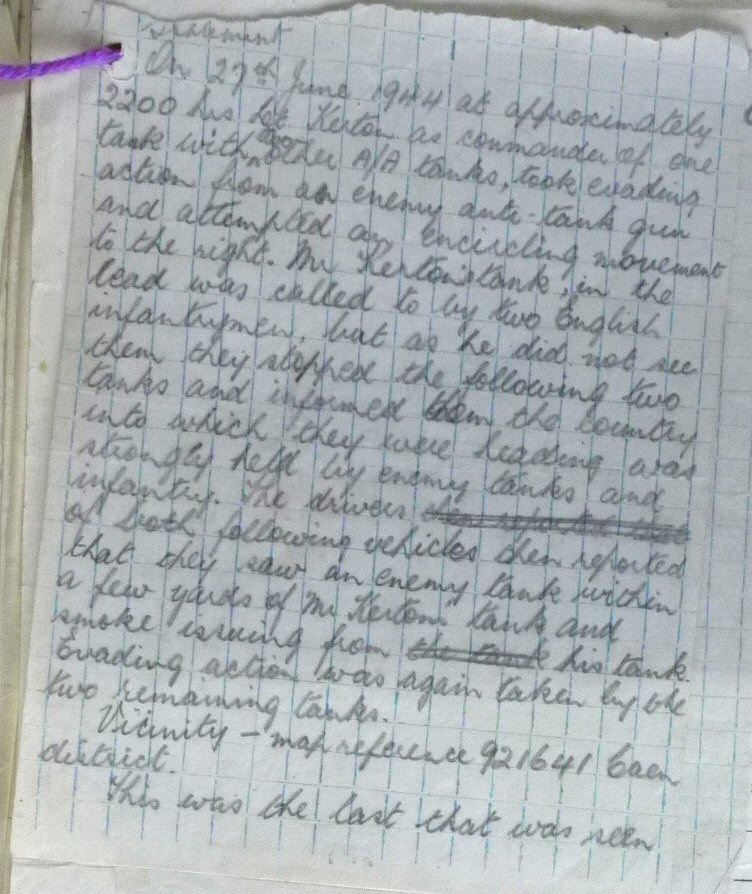 Statement
On 27th June 1944 at approximately
2200 hrs Lt Kerton as commander of one
tank with two other A/A tanks, took evading
action from an enemy anti-tank gun
and attempted an encircling movement
to the right. Mr Kerton's tank, in the
lead was called to by two English
infantrymen, but as he did not see
them they stopped the following two
tanks and informed them the country
into which they were heading was
strongly held by enemy tanks and
infantry. The drivers
of both following vehicles then reported
that they saw an enemy tank within
a few yards of Mr Kerton's tank and
smoke issuing from the tank his tank.
Evading action was again taken by the
two remaining tanks.
Vicinity – map reference 921641 Caen
district.
This was the last that was seen